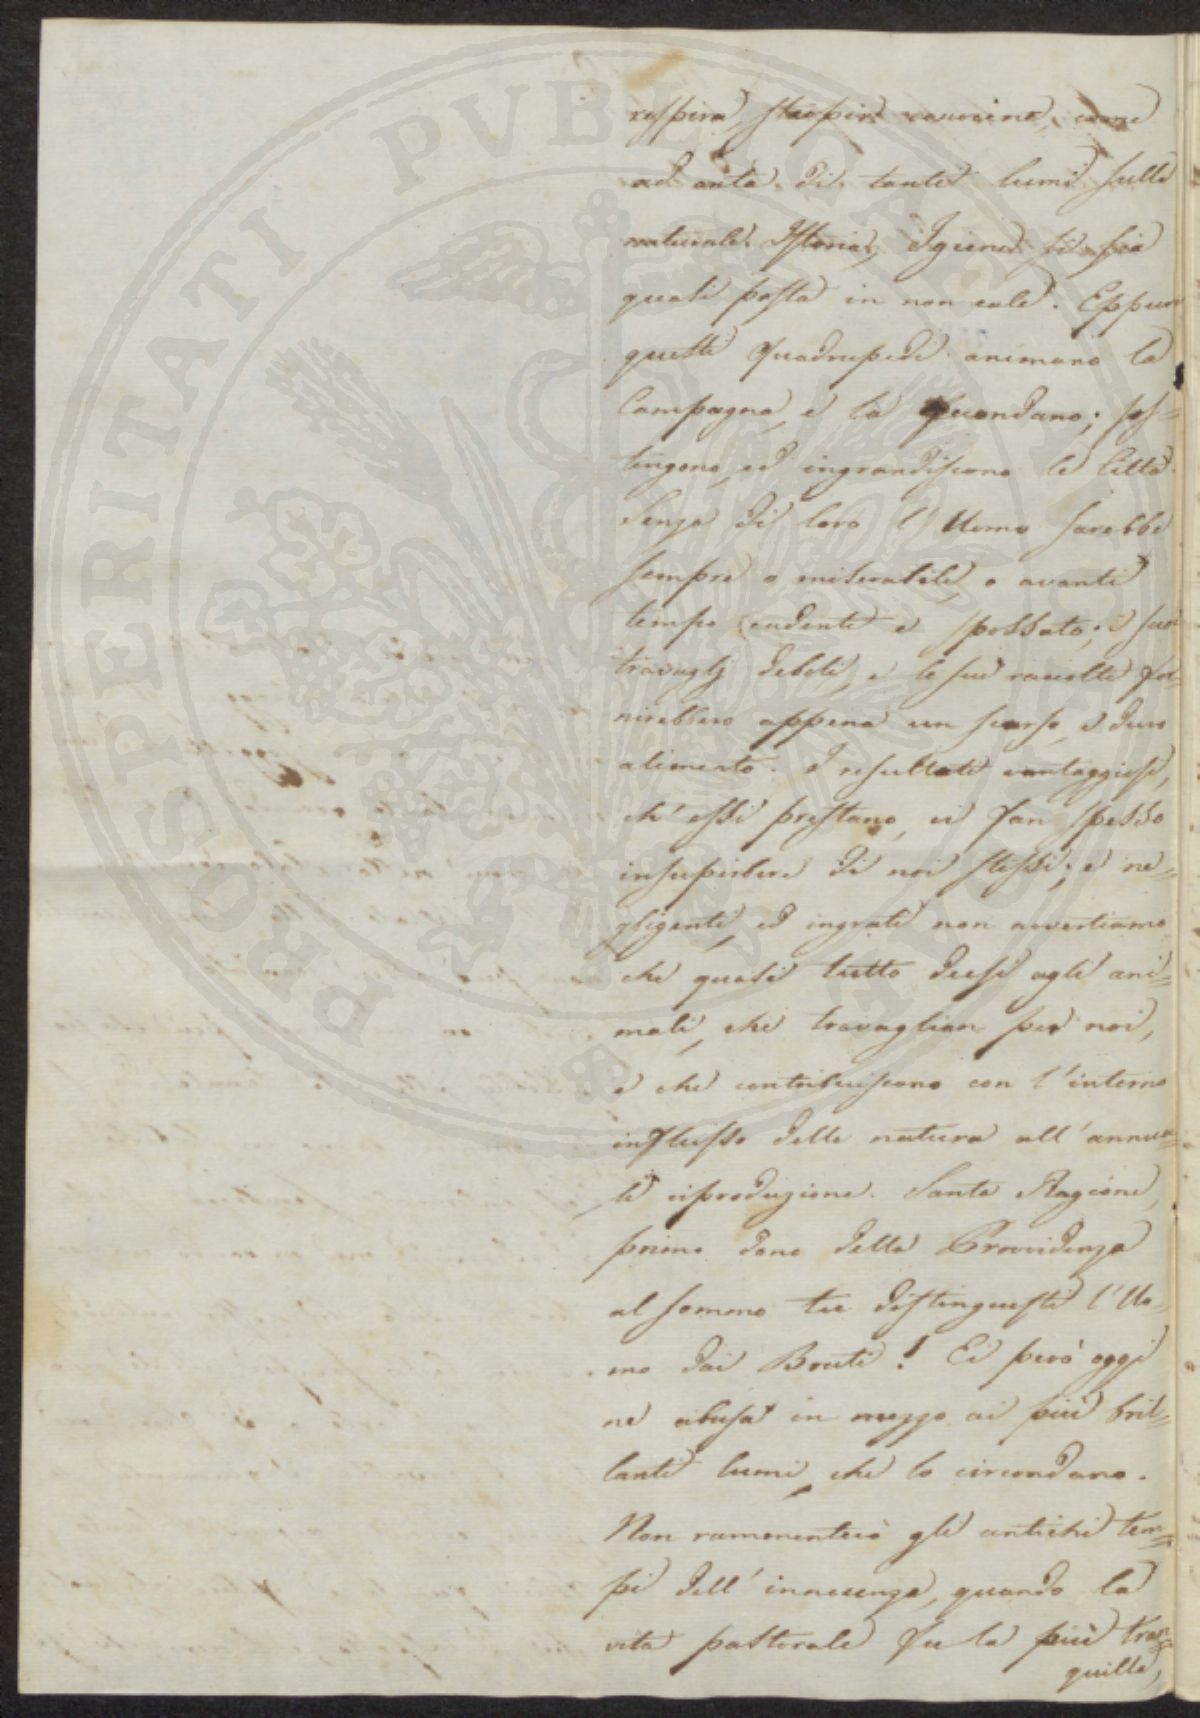 respira, stupirà conoscere, come
ad onta di tanti lumi sulla
naturale Istoria, Igiene si sia
quasi posta in non cale. Eppure
questi Quadrupedi animano la
Campagna, e la fecondano; sos=
tengono, ed ingrandiscono le Città
Senza di loro l'Uomo sarebbe
sempre o miserabile, o avanti
tempo cadente e spossato; i suoi
travaglj deboli, e le sue raccolte for=
nirebbero appena un scarso, e duro
alimento. I resultati vantaggiosi,
ch'essi prestano, ci fan spesso
insuperbire di noi stessi; e ne=
gligenti, ed ingrati non avvertiamo
che quasi tutto deesi agli ani=
mali, che travaglian per noi,
e che contribuiscono con l'interno
influsso della natura all'annua=
le riproduzione. Santa Ragione,
primo dono della Provvidenza
al sommo tu distinguesti l'Uo=
mo dai Bruti! Ei però oggi
ne abusa in mezzo ai più bril=
lanti lumi, che lo circondano.
Non rammenterò gli antichi tem=
pi dell'innocenza, quando la
vita pastorale fu la più tran=
quilla,
PROSPERITATI PVBLICAE